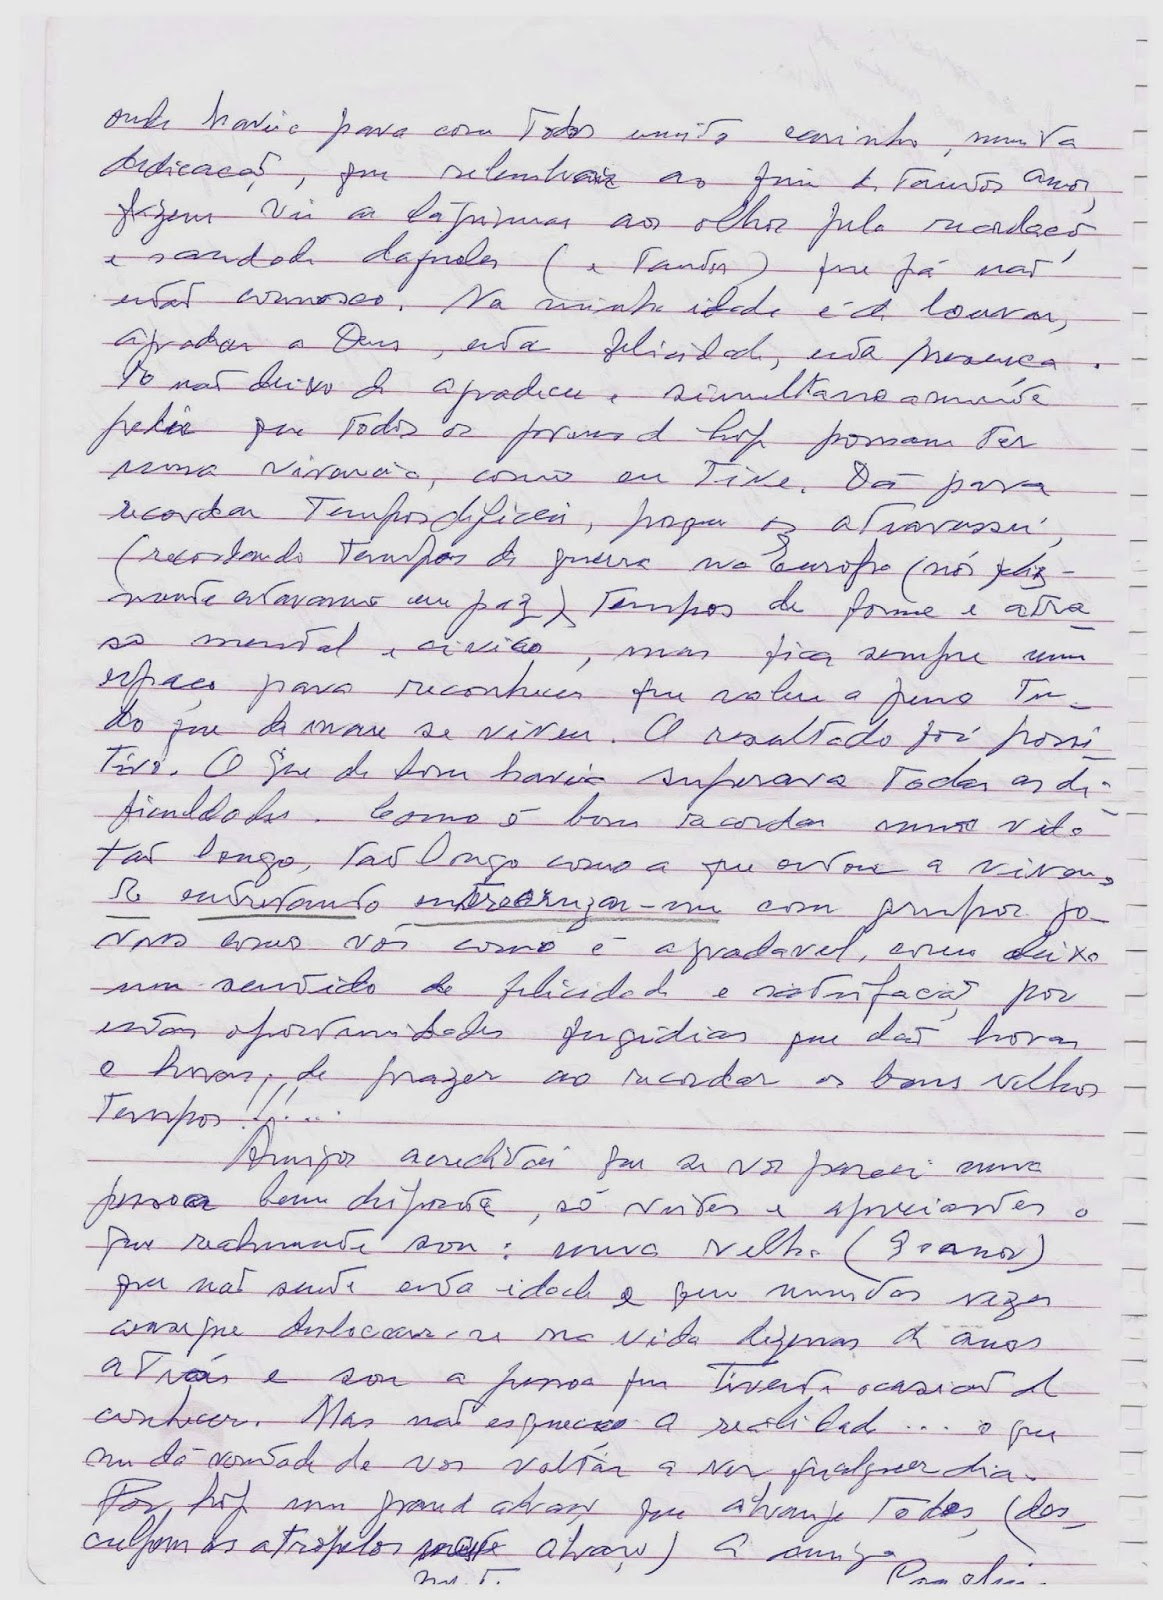 onde havia para com todos muito carinho, muita
dedicação, que relembrar ao fim de tantos anos,
fazem vir as lágrimas aos olhos pela recordação
e saudade daqueles (e tantos) que já não
estão connosco. Na minha idade é de louvar,
agradecer a Deus, esta felicidade, esta presença.
não deixo de agradecer e simultaneamente
pedir que todos os jovens d'hoje possam ter
uma vivência, como eu tive. Dá para
recordar tempos difíceis, porque os atravessei,
(recordando tempos de guerra na Europa (nós feliz-
mente estavamos em paz), tempos de fome e atra
so mental e civico, mas fica sempre um
espaço para reconhecer que valeu a pena tu-
do que se viveu. O resultado foi possi
tivo. O que de bom havia superava todas as di-
ficuldades. Como é bom recordar numa vida
tão longa, tão longa como a que estou a viver,
e entretanto entrecruzar-me com grupos jo-
vens como vós como é agradavel, como deixa
um sentido de felicidade e satisfação por
estas oportunidades fugidias que dão horas
e horas, de prazer ao recordar os bons velhos
tempos!!!...
Amigos acreditai que se vos pareci uma
pessoa bem disposta, só vistes e apreciastes o
que realmente sou: uma velha (anos)
que não sente esta idade e que muitas vezes
consegue deslocar-se na vida dezenas de anos
atrás e sou a pessoa que tivestes ocasião de
conhecer. Mas não esqueço a realidade... o que
me dá vontade de vos voltar a ver qualquer dia.
Por hoje um grande abraço que abranje todos, (des-
culpem os atropelos abraço) a amiga